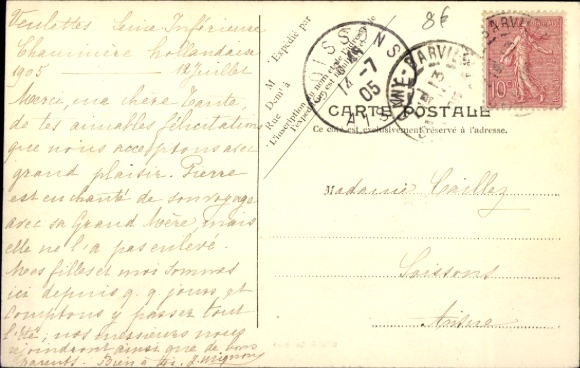 Veulettes Seine Inférieure
Chaumière hollandaise
1905 12 Juillet
Merci, ma chère Tante,
de tes aimables félicitations
que nous acceptons avec
grand plaisir. Pierre
est enchanté de son voyage
avec sa Grand Mère, mais
elle ne l'a pas enlevé.
Mes filles et moi sommes
ici depuis q. q. jours et
comptons y passer tout
l'été; nos messieurs nous
rejoindront ainsi que de bons
parents. Bien à toi. J. Mignon
M
Expédié par
Demt à
Rue
L'inscription du nom et de l'adresse de
l'expéditeur
8€
SOISSONS
14 -7
05
AISNE
BARVILLE
10c
CARTE POSTALE
Ce côté est exclusivement réservé à l'adresse.
Madame Caillez
Soissons
Aisne